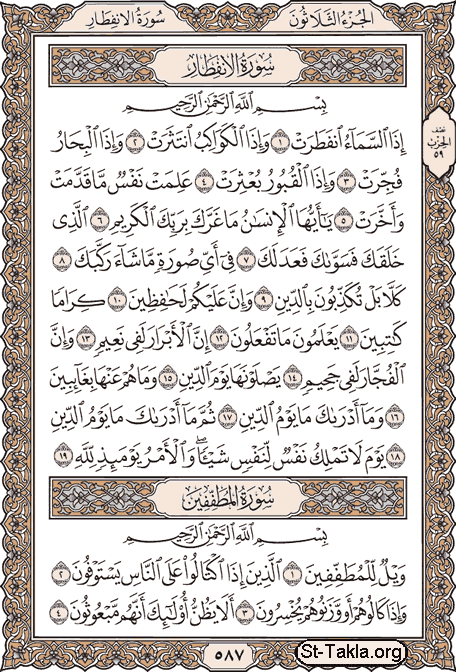 الجزء الثلاثون
سورة الانفطار
سورة الانفطار
بسم الله الرحمن الرحيم
إِذَا ٱلسَّمَآءُ ٱنفَطَرَتۡ ١ وَإِذَا ٱلۡكَوَاكِبُ ٱنتَثَرَتۡ ٢ وَإِذَا ٱلۡبِحَارُ
فُجِّرَتۡ ٣ وَإِذَا ٱلۡقُبُورُ بُعۡثِرَتۡ ٤ عَلِمَتۡ نَفۡسٞ مَّا قَدَّمَتۡ
وَأَخَّرَتۡ ٥ يَٰٓأَيُّهَا ٱلۡإِنسَٰنُ مَا غَرَّكَ بِرَبِّكَ ٱلۡكَرِيمِ ٦ ٱلَّذِي
خَلَقَكَ فَسَوَّىٰكَ فَعَدَلَكَ ٧ فِيٓ أَيِّ صُورَةٖ مَّا شَآءَ رَكَّبَكَ ٨
كَلَّا بَلۡ تُكَذِّبُونَ بِٱلدِّينِ ٩ وَإِنَّ عَلَيۡكُمۡ لَحَٰفِظِينَ ١٠ كِرَامٗا
كَٰتِبِينَ ١١ يَعۡلَمُونَ مَا تَفۡعَلُونَ ١٢ إِنَّ ٱلۡأَبۡرَارَ لَفِي نَعِيمٖ ١٣ وَإِنَّ
ٱلۡفُجَّارَ لَفِي جَحِيمٖ ١٤ يَصۡلَوۡنَهَا يَوۡمَ ٱلدِّينِ ١٥ وَمَا هُمۡ عَنۡهَا بِغَآئِبِينَ
١٦ وَمَآ أَدۡرَىٰكَ مَا يَوۡمُ ٱلدِّينِ ١٧ ثُمَّ مَآ أَدۡرَىٰكَ مَا يَوۡمُ ٱلدِّينِ
١٨ يَوۡمَ لَا تَمۡلِكُ نَفۡسٞ لِّنَفۡسٖ شَيۡـٔٗاۖ وَٱلۡأَمۡرُ يَوۡمَئِذٖ لِّلَّهِ ١٩
نصف
الحزب
٥٩
سورة المطففين
بسم الله الرحمن الرحيم
وَيۡلٞ لِّلۡمُطَفِّفِينَ ١ ٱلَّذِينَ إِذَا ٱكۡتَالُواْ عَلَى ٱلنَّاسِ يَسۡتَوۡفُونَ ٢
وَإِذَا كَالُوهُمۡ أَو وَّزَنُوهُمۡ يُخۡسِرُونَ ٣ أَلَا يَظُنُّ أُوْلَٰٓئِكَ أَنَّهُم مَّبۡعُوثُونَ ٤
٥٨٧
St-Takla.org